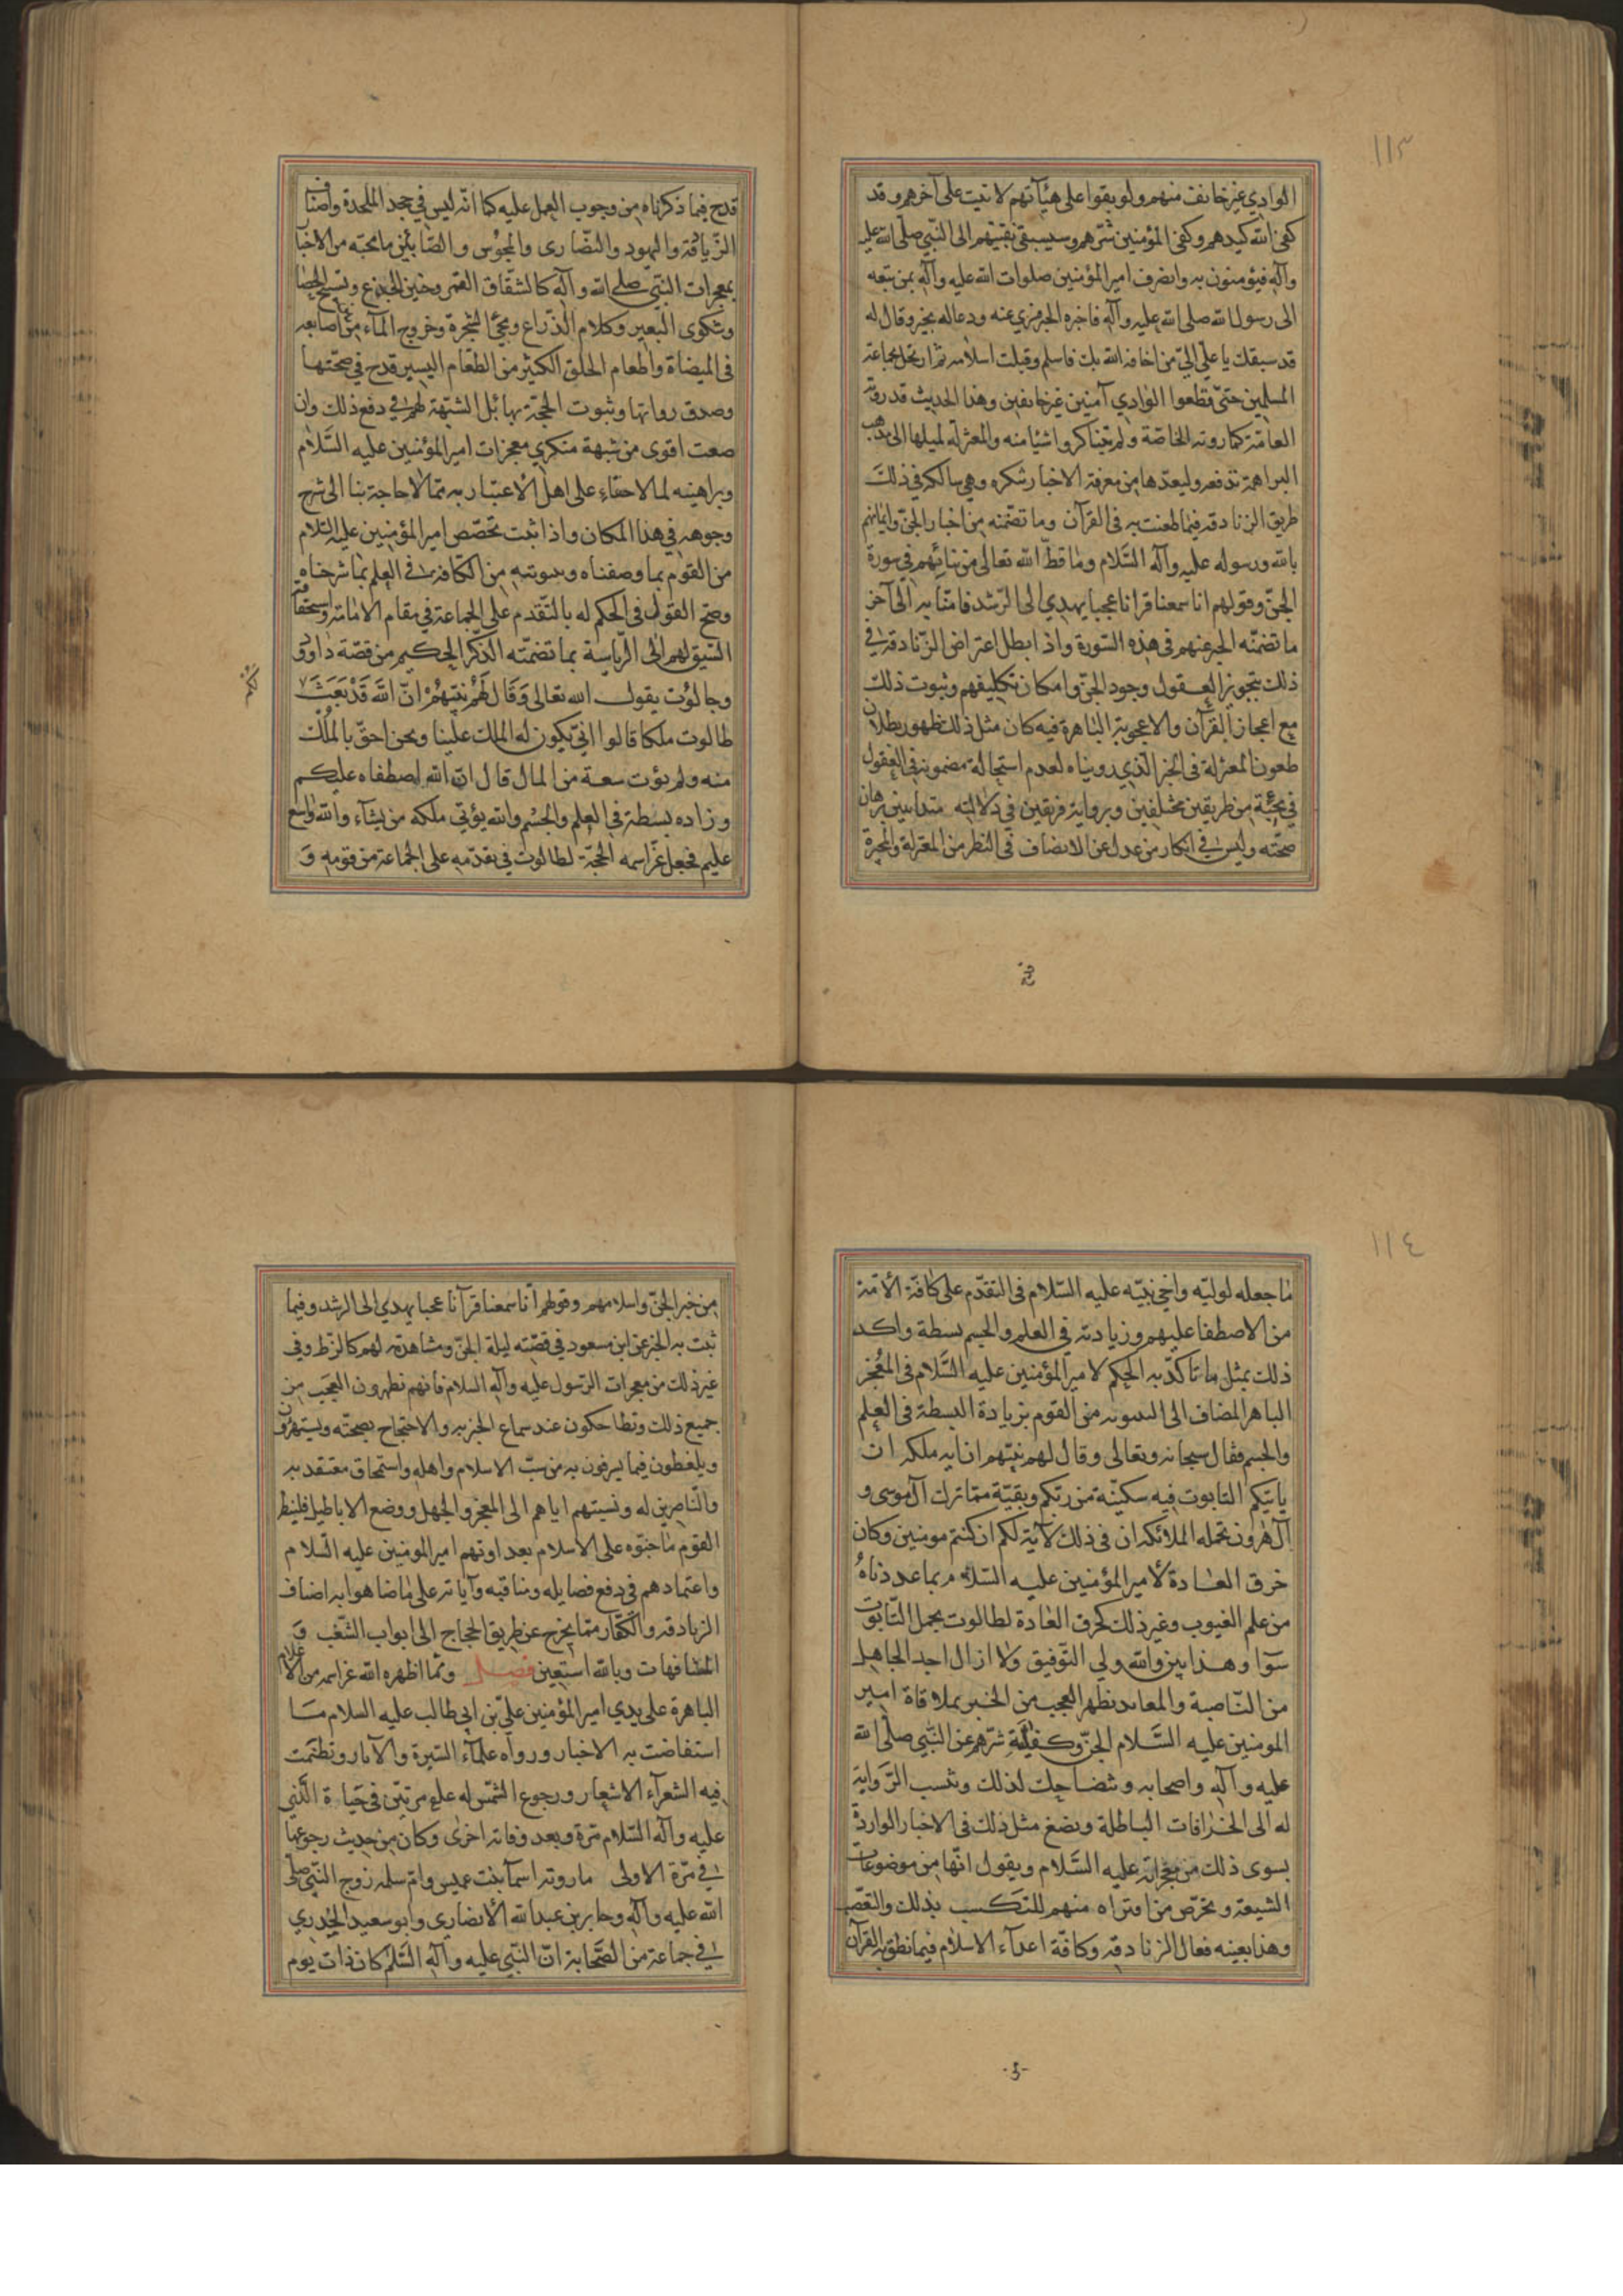 ١١٣
الوادي غير خائف منهم ولو بقوا على هيآتهم لاتيت على آخرهم وقد
كفى الله كيدهم وكفى المؤمنين شرهم وسيسبقني بقيتهم الى النبي صلى الله عليه
وآله فيؤمنون به وانصرف امير المؤمنين صلوات الله عليه وآله بمن تبعه
الى رسول الله صلى الله عليه وآله فاخبره الخبر فسري عنه ودعا له بخير وقال له
قد سبقك يا علي الي من اخافه الله بك فاسلم وقبلت اسلامه ثم ارتحل بجماعة
المسلمين حتى قطعوا الوادي آمنين غير خائفين وهذا الحديث قد روته
العامة كما روته الخاصة ولم يتناكروا شيئا منه والمعتزلة لميلها الى مذهب
البراهمة تدفعه ولبعدها من معرفة الاخبار تنكره وهي سالكة في ذلك
طريق الزنادقة فيما طعنت به في القرآن وما تضمنه من اخبار الجن وايمانهم
بالله ورسوله عليه وآله السلام وما قص الله تعالى من نبائهم في سورة
الجن وقولهم انا سمعنا قرانا عجبا يهدي الى الرشد فامنا به الى آخر
ما تضمنه الخبر عنهم في هذه السورة واذا بطل اعتراض الزنادقة في
ذلك بتجويز العقول وجود الجن وامكان تكليفهم وثبوت ذلك
مع اعجاز القرآن والاعجوبة الباهرة فيه كان مثل ذلك ظهور بطلان
طعون المعتزلة في الخبر الذي رويناه لعدم استحالة مضمونه في العقول
في مجيئه من طريقين مختلفين وبرواية فريقين في دلالته متباينين برهان
صحته وليس في انكار من عدل عن الانصاف في النظر من المعتزلة والمجبرة
قدح فيما ذكرناه من وجوب العمل عليه كما انه ليس في جحد الملحدة واصناف
الزنادقة واليهود والنصارى والمجوس والصابئين ما مجته من الاخبار
بمعجزات النبي صلى الله وآله كانشقاق القمر وحنين الجذع وتسبيح الحصا
وشكوى البعير وكلام الذراع ومجئ الشجرة وخروج الماء من اصابعه
في الميضاة واطعام الخلق الكثير من الطعام اليسير قدح في صحتها
وصدق رواتها وثبوت الحجة بها بل الشبهة لهم في دفع ذلك وان
ضعفت اقوى من شبهة منكري معجزات امير المؤمنين عليه السلام
وبراهينه لما لا خفاء على اهل الاعتبار به مما لا حاجة بنا الى شرح
وجوهه في هذا المكان واذا ثبت تخصص امير المؤمنين عليه السلام
من القوم بما وصفناه وبينونته من الكافة في العلم بما شرحناه
وضح القول في الحكم له بالتقدم على الجماعة في مقام الامامة واستحقاقه
السبق لهم الى الرياسة بما تضمنه الذكر الحكيم من قصة داود
وجالوت يقول الله تعالى وَقَالَ لَهُمْ نَبِيُّهُمْ اِنَّ اللَّهَ قَدْ بَعَثَ
طالوت ملكا قالوا انى يكون له الملك علينا ونحن احق بالملك
منه ولم يؤت سعة من المال قال ان الله اصطفاه عليكم
وزاده بسطة في العلم والجسم والله يؤتي ملكه من يشآء والله واسع
عليم فجعل عز اسمه الحجة لطالوت في تقدمه على الجماعة من قومه و
١١٤
ما جعله لوليه واخي نبيه عليه السلام في التقدم على كافة الامة
من الاصطفا عليهم وزيادته في العلم والجسم بسطة واكد
ذلك بمثل ما تاكد به الحكم لامير المؤمنين عليه السلام في المعجز
الباهر المضاف الى البينونة من القوم بزيادة البسطة في العلم
والجسم فقال سبحانه وتعالى وقال لهم نبيهم ان اية ملكه ان
ياتيكم التابوت فيه سكينة من ربكم وبقية مما ترك آل موسى و
آل هرون تحمله الملائكة ان في ذلك لآية لكم ان كنتم مومنين وكان
خرق العادة لامير المؤمنين عليه السلام بما عددناه
من علم الغيوب وغير ذلك كخرق العادة لطالوت بحمل التابوت
سوا وهذا بين والله ولي التوفيق ولا ازال اجد الجاهل
من الناصبة والمعاند نظهر العجب من الخبر بملاقاة امير
المومنين عليه السلام الجن وكفه شرهم عن النبي صلى الله
عليه وآله واصحابه وتضاحك لذلك وتنسب الرواية
له الى الخرافات الباطلة وتضع مثل ذلك في الاخبار الواردة
بسوى ذلك من معجزاته عليه السلام ويقول انها من موضوعات
الشيعة وتخرص من افتراه منهم للتكسب بذلك والتعصب
وهذا بعينه فعال الزنادقة وكافة اعدآء الاسلام فيما نطق به القرآن
من خبر الجن واسلامهم وقولهم انا سمعنا قرآنا عجبا يهدي الى الرشد وفيما
ثبت به الخبر عن ابن مسعود في قصته ليلة الجن ومشاهدته لهم كالزط وفي
غير ذلك من معجزات الرسول عليه وآله السلام فانهم يظهرون العجب من
جميع ذلك وتضاحكون عند سماع الخبر به والاحتجاج بصحته ويستهزؤن
ويلغطون فيما يسرفون به من سب الاسلام واهله واستحماق معتقديه
والناصرين له ونسبتهم اياهم الى العجز والجهل ووضع الاباطيل فلينظر
القوم ما جنوه على الاسلام بعداوتهم امير المومنين عليه السلام
واعتمادهم في دفع فضايله ومناقبه وآياته على ما ضاهوا به اضاف
الزنادقة والكفار مما يخرج عن طريق الحجاج الى ابواب الشغب و
المشافهات وبالله استعين فصل ومما اظهره الله عز اسمه من الاعلام
الباهرة على يدي امير المؤمنين علي بن ابي طالب عليه السلام ما
استفاضت به الاخبار ورواه علمآء السيرة والآثار ونظمت
فيه الشعرآء الاشعار ورجوع الشمس له علم مرتين في حياة النبي
عليه وآله السلام مرة وبعد وفاته اخرى وكان من حديث رجوعها
في مرة الاولى ما روته اسمآ بنت عميس وام سلمه زوج النبي صلى
الله عليه وآله وجابر بن عبد الله الانصاري وابو سعيد الخدري
في جماعة من الصحابة ان النبي عليه وآله السلم كان ذات يوم